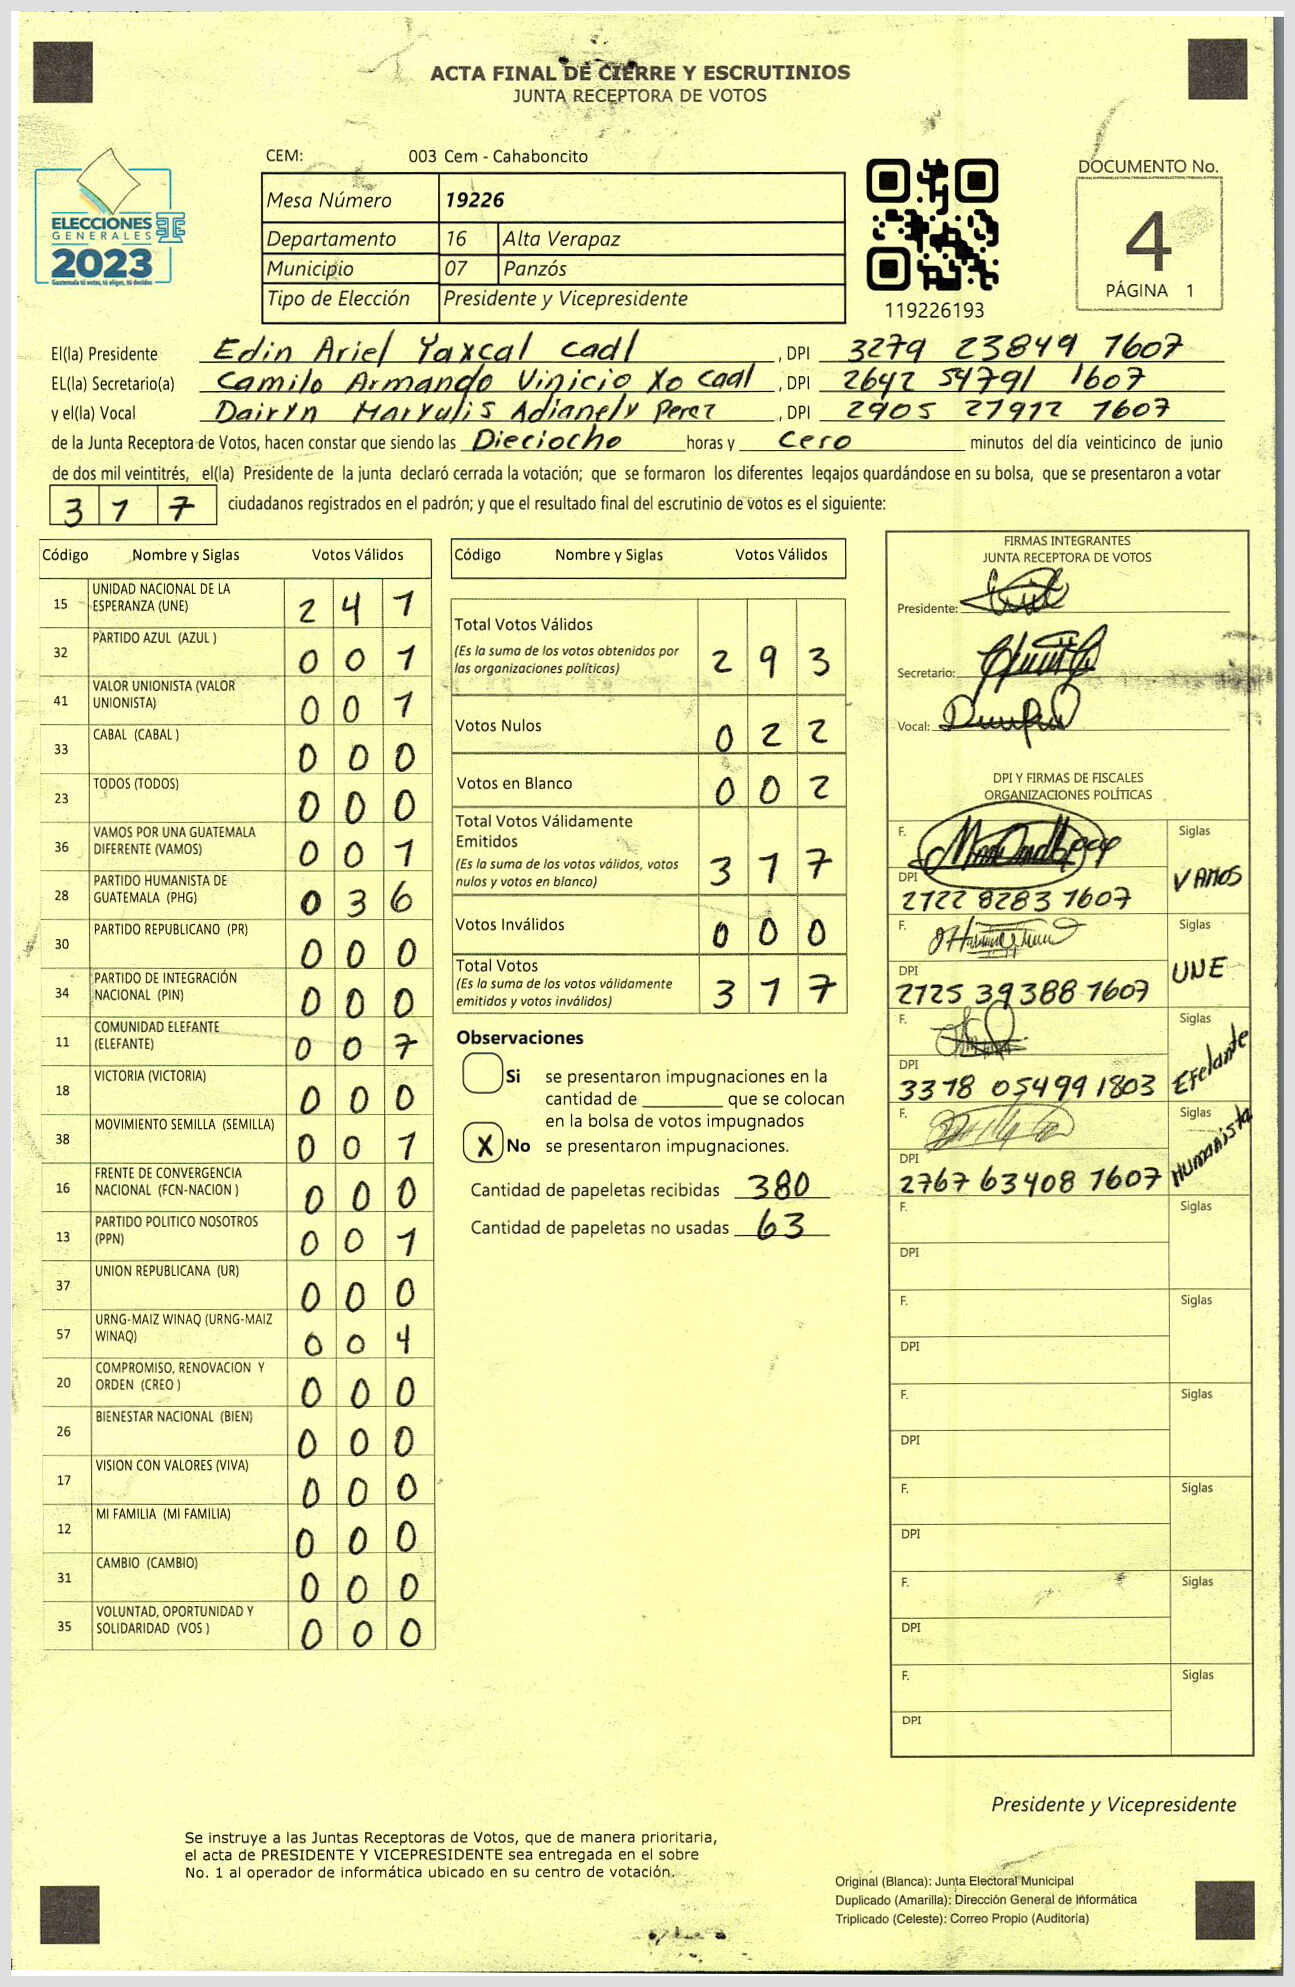 ACTA FINAL DE CIERRE Y ESCRUTINIOS
JUNTA RECEPTORA DE VOTOS
CEM: 003 Cem - Cahaboncito
DOCUMENTO No.
4
PÁGINA 1
ELECCIONES
GENERALES
2023
Guatemala tú votas, tú eliges, tú decides
Mesa Número 19226
Departamento 16 Alta Verapaz
Municipio 07 Panzós
Tipo de Elección Presidente y Vicepresidente
119226193
El(la) Presidente Edin Ariel Yaxcal Caal , DPI 3279 23849 1607
EL(la) Secretario(a) Camilo Armando Vinicio Xo Caal , DPI 2642 54791 1607
y el(la) Vocal Dairyn Maryulis Adianely Perez , DPI 2905 27912 1607
de la Junta Receptora de Votos, hacen constar que siendo las Dieciocho horas y cero minutos del día veinticinco de junio
de dos mil veintitrés, el(la) Presidente de la junta declaró cerrada la votación; que se formaron los diferentes legajos quardándose en su bolsa, que se presentaron a votar
3 1 7 ciudadanos registrados en el padrón; y que el resultado final del escrutinio de votos es el siguiente:
Código Nombre y Siglas Votos Válidos
15 UNIDAD NACIONAL DE LA
ESPERANZA (UNE) 2 4 1
32 PARTIDO AZUL (AZUL ) 0 0 1
41 VALOR UNIONISTA (VALOR
UNIONISTA) 0 0 1
33 CABAL (CABAL ) 0 0 0
23 TODOS (TODOS) 0 0 0
36 VAMOS POR UNA GUATEMALA
DIFERENTE (VAMOS) 0 0 1
28 PARTIDO HUMANISTA DE
GUATEMALA (PHG) 0 3 6
30 PARTIDO REPUBLICANO (PR) 0 0 0
34 PARTIDO DE INTEGRACIÓN
NACIONAL (PIN) 0 0 0
11 COMUNIDAD ELEFANTE
(ELEFANTE) 0 0 7
18 VICTORIA (VICTORIA) 0 0 0
38 MOVIMIENTO SEMILLA (SEMILLA) 0 0 1
16 FRENTE DE CONVERGENCIA
NACIONAL (FCN-NACION ) 0 0 0
13 PARTIDO POLITICO NOSOTROS
(PPN) 0 0 1
37 UNION REPUBLICANA (UR) 0 0 0
57 URNG-MAIZ WINAQ (URNG-MAIZ
WINAQ) 0 0 4
20 COMPROMISO, RENOVACION Y
ORDEN (CREO ) 0 0 0
26 BIENESTAR NACIONAL (BIEN) 0 0 0
17 VISION CON VALORES (VIVA) 0 0 0
12 MI FAMILIA (MI FAMILIA) 0 0 0
31 CAMBIO (CAMBIO) 0 0 0
35 VOLUNTAD, OPORTUNIDAD Y
SOLIDARIDAD (VOS ) 0 0 0
Código Nombre y Siglas Votos Válidos
Total Votos Válidos
(Es la suma de los votos obtenidos por
las organizaciones políticas) 2 9 3
Votos Nulos 0 2 2
Votos en Blanco 0 0 2
Total Votos Válidamente
Emitidos
(Es la suma de los votos válidos, votos
nulos y votos en blanco) 3 1 7
Votos Inválidos 0 0 0
Total Votos
(Es la suma de los votos válidamente
emitidos y votos inválidos) 3 1 7
Observaciones
Si se presentaron impugnaciones en la
cantidad de ________ que se colocan
en la bolsa de votos impugnados
X No se presentaron impugnaciones.
Cantidad de papeletas recibidas 380
Cantidad de papeletas no usadas 63
FIRMAS INTEGRANTES
JUNTA RECEPTORA DE VOTOS
Presidente:
Secretario:
Vocal:
DPI Y FIRMAS DE FISCALES
ORGANIZACIONES POLÍTICAS
F. Siglas
VAMOS
DPI
2122 8283 1607
F. Siglas
UNE
DPI
2125 39388 1607
F. Siglas
Efelante
DPI
3378 05499 1803
F. Siglas
HUMANISTA
DPI
2767 63408 1607
F. Siglas
DPI
F. Siglas
DPI
F. Siglas
DPI
F. Siglas
DPI
F. Siglas
DPI
F. Siglas
DPI
Presidente y Vicepresidente
Se instruye a las Juntas Receptoras de Votos, que de manera prioritaria,
el acta de PRESIDENTE Y VICEPRESIDENTE sea entregada en el sobre
No. 1 al operador de informática ubicado en su centro de votación.
Original (Blanca): Junta Electoral Municipal
Duplicado (Amarilla): Dirección General de Informática
Triplicado (Celeste): Correo Propio (Auditoría)